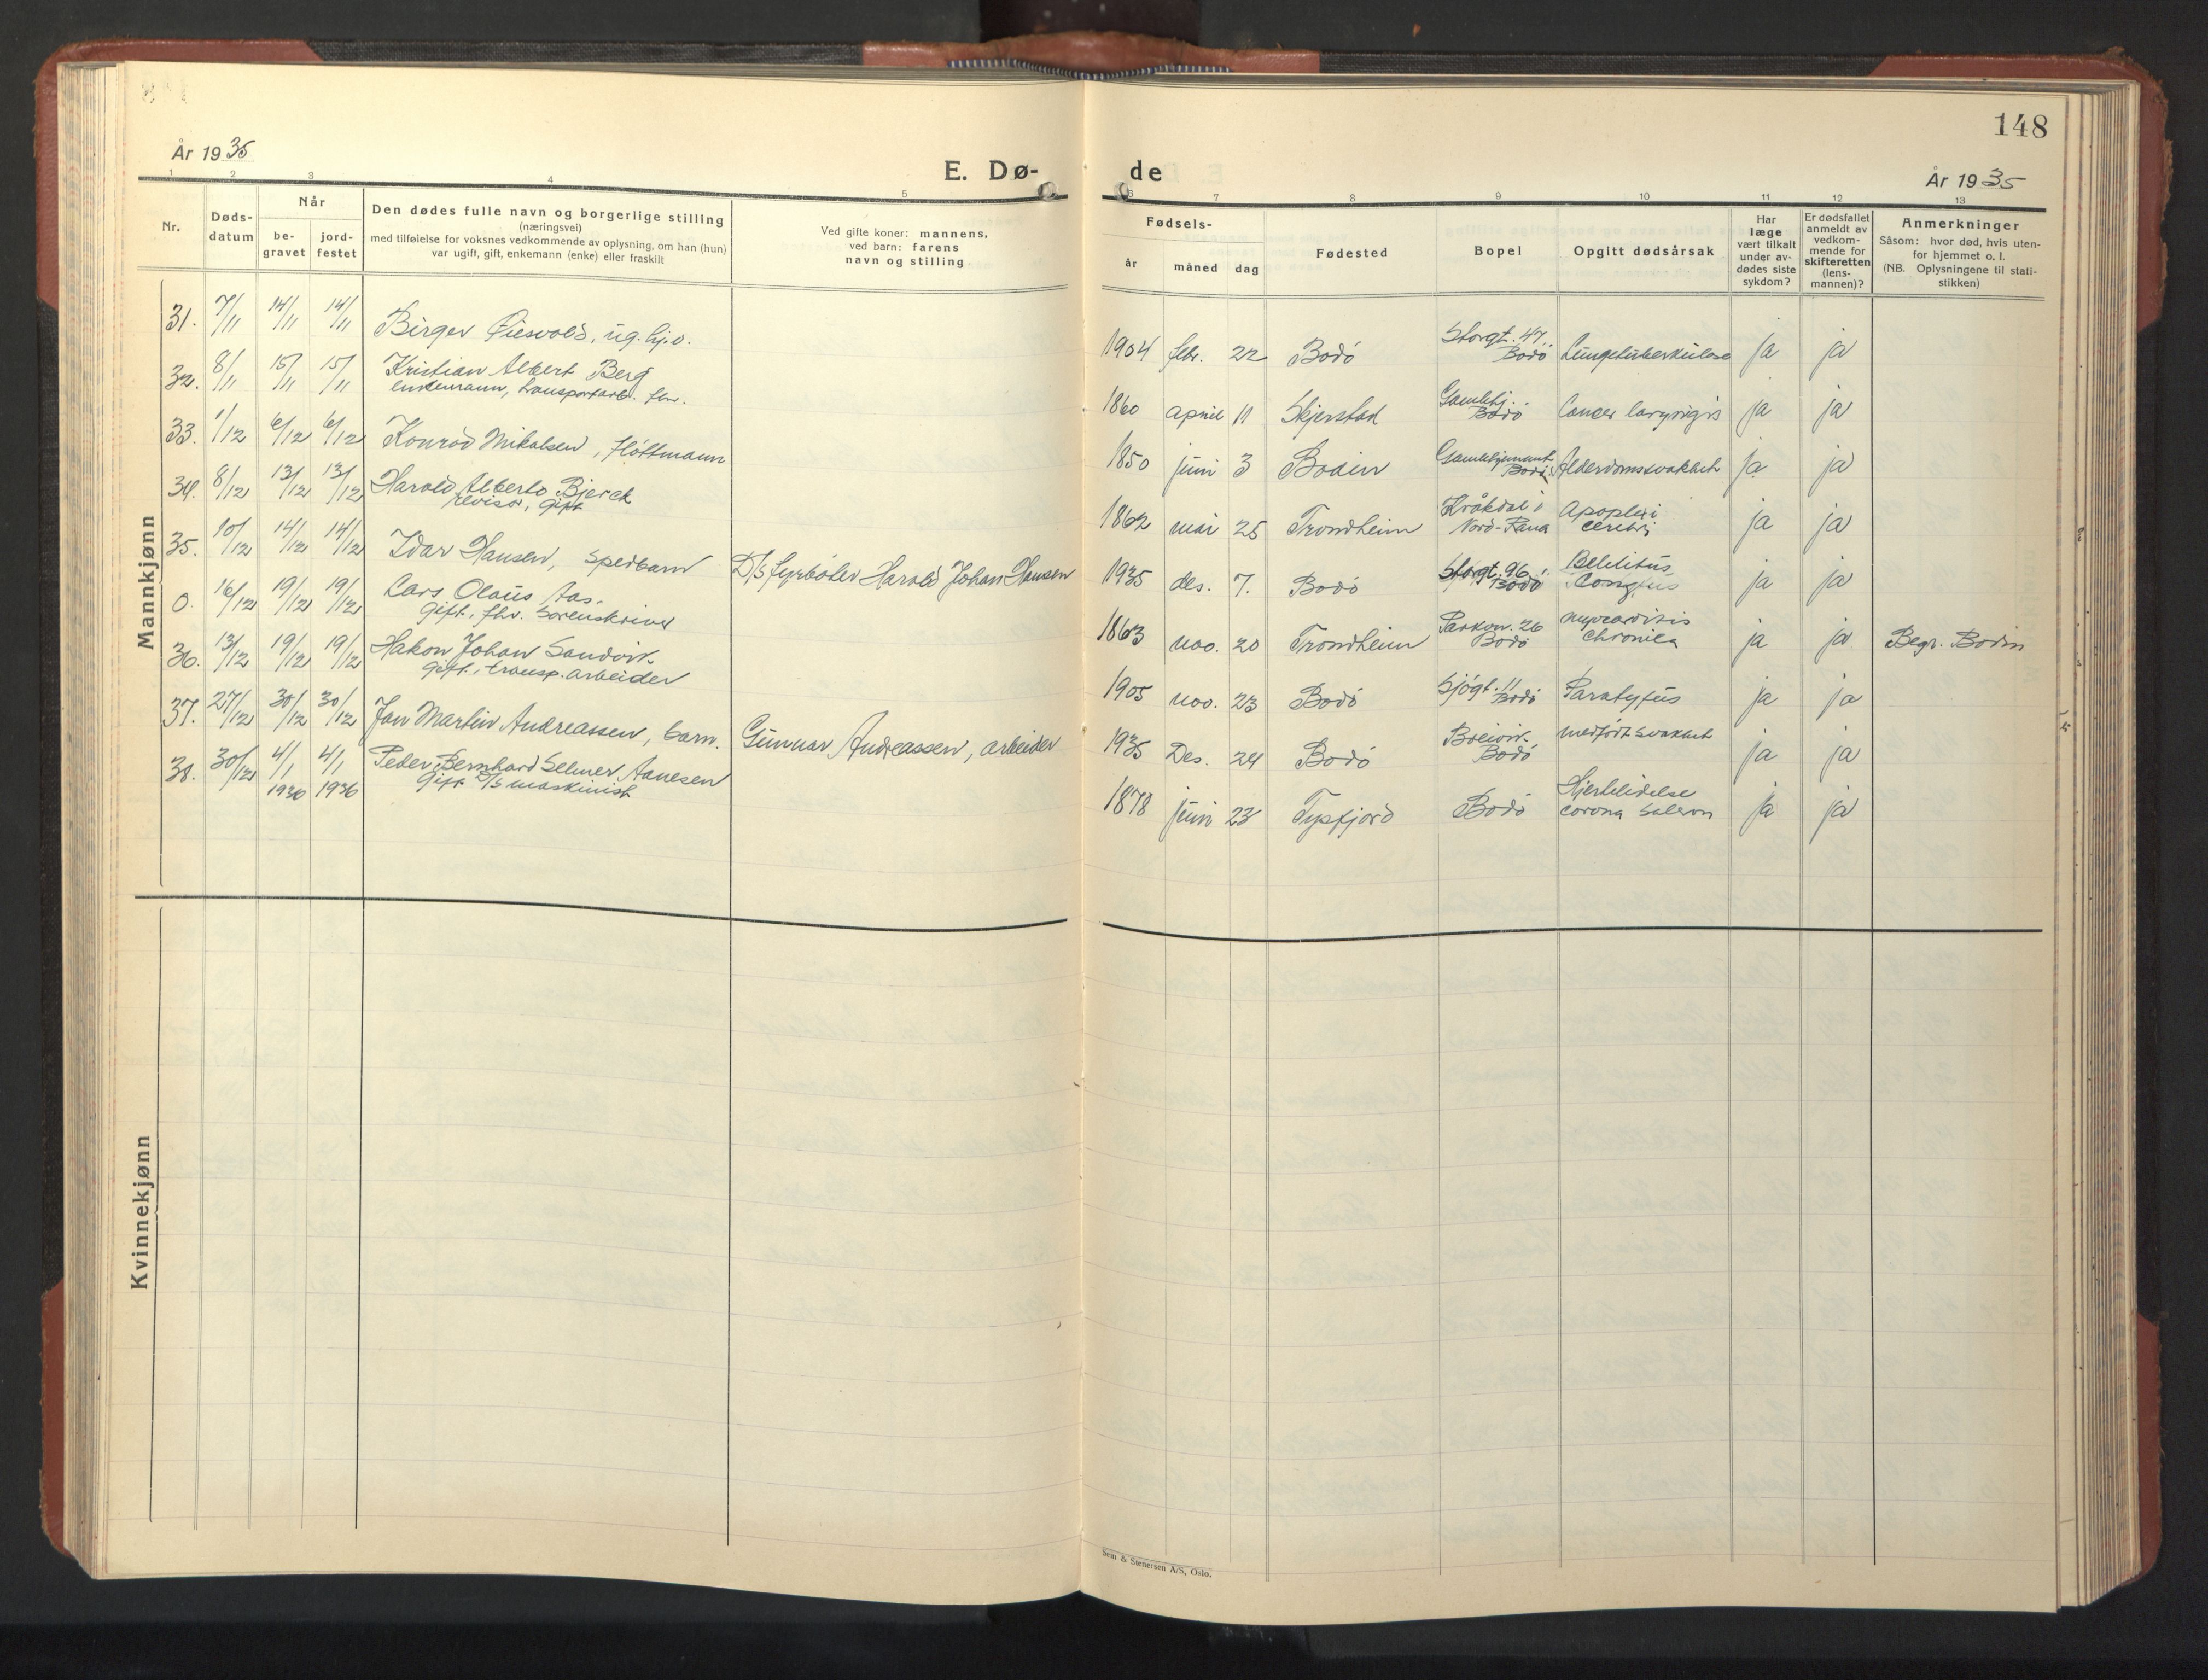 148
År 1935
E. Døde
År 1935
1 2 3 4 5 6 7 8 9 10 11 12 13
Nr.
Døds-
datum
Når
be-
gravet
jord-
festet
Den dødes fulle navn og borgerlige stilling
(næringsvei)
med tilføielse for voksnes vedkommende av oplysning, om han (hun)
var ugift, gift, enkemann (enke) eller fraskilt
Ved gifte koner: mannens,
ved barn: farens
navn og stilling
Fødsels-
år
måned
dag
Fødested
Bopel
Opgitt dødsårsak
Har
læge
vært tilkalt
under av-
dødes siste
sykdom?
Er dødsfallet
anmeldt av
vedkom-
mende for
skifteretten
(lens-
mannen)?
Anmerkninger
Såsom: hvor død, hvis uten-
for hjemmet o. l.
(NB. Oplysningene til stati-
stikken)
Mannkjønn
31. 7/11 14/11 14/11 Birger Øiesvold, ug. hj.v. 1904 febr. 22 Bodö Storgt. 47. Bodö Lungetuberkulose ja ja
32. 8/11 15/11 15/11 Kristian Albert Berg
enkemann, transportarb. fhv. 1860 april 11 Skjerstad Gamlehj. Bodö Cancer laryngis ja ja
33. 1/12 6/12 6/12 Konrad Mikalsen, fløttmann 1850 juni 3 Bodin Gamlehjemmet Bodö Alderdomssvakhet ja ja
34. 8/12 13/12 13/12 Harald Alberto Bjerck
revisor, gift 1862 mai 25 Trondheim Kråkdal i Nord-Rana Apoplexi cerebri ja ja
35. 10/12 14/12 14/12 Idar Hansen, spedbarn D/S fyrböter Harald Johan Hansen 1935 des. 7. Bodö Storgt. 96. Bodö ja ja
0. 16/12 19/12 19/12 Lars Olaus Aas.
gift, fhv. sorenskriver 1863 nov. 20 Trondheim Parkvn. 26 Bodö myocarditis chronica ja ja Begr. Bodin
36. 13/12 19/12 19/12 Hakon Johan Sandvik.
gift, transp. arbeider 1905 nov. 23 Bodö Sjøgt. 11 Bodö Paratyfus ja ja
37. 27/12 30/12 30/12 Jan Martin Andreassen, barn. Gunnar Andreassen, arbeider 1935 Des. 24 Bodö Breivik. Bodö medfödt svakhet ja ja
38. 30/12 4/1 1936 4/1 1936 Peder Bernhard Selmer Aanesen
Gift D/S maskinist 1878 juni 23 Tysfjord Bodö Hjertelidelse corona ja ja
Kvinnekjønn
Sem & Stenersen A/S, Oslo.